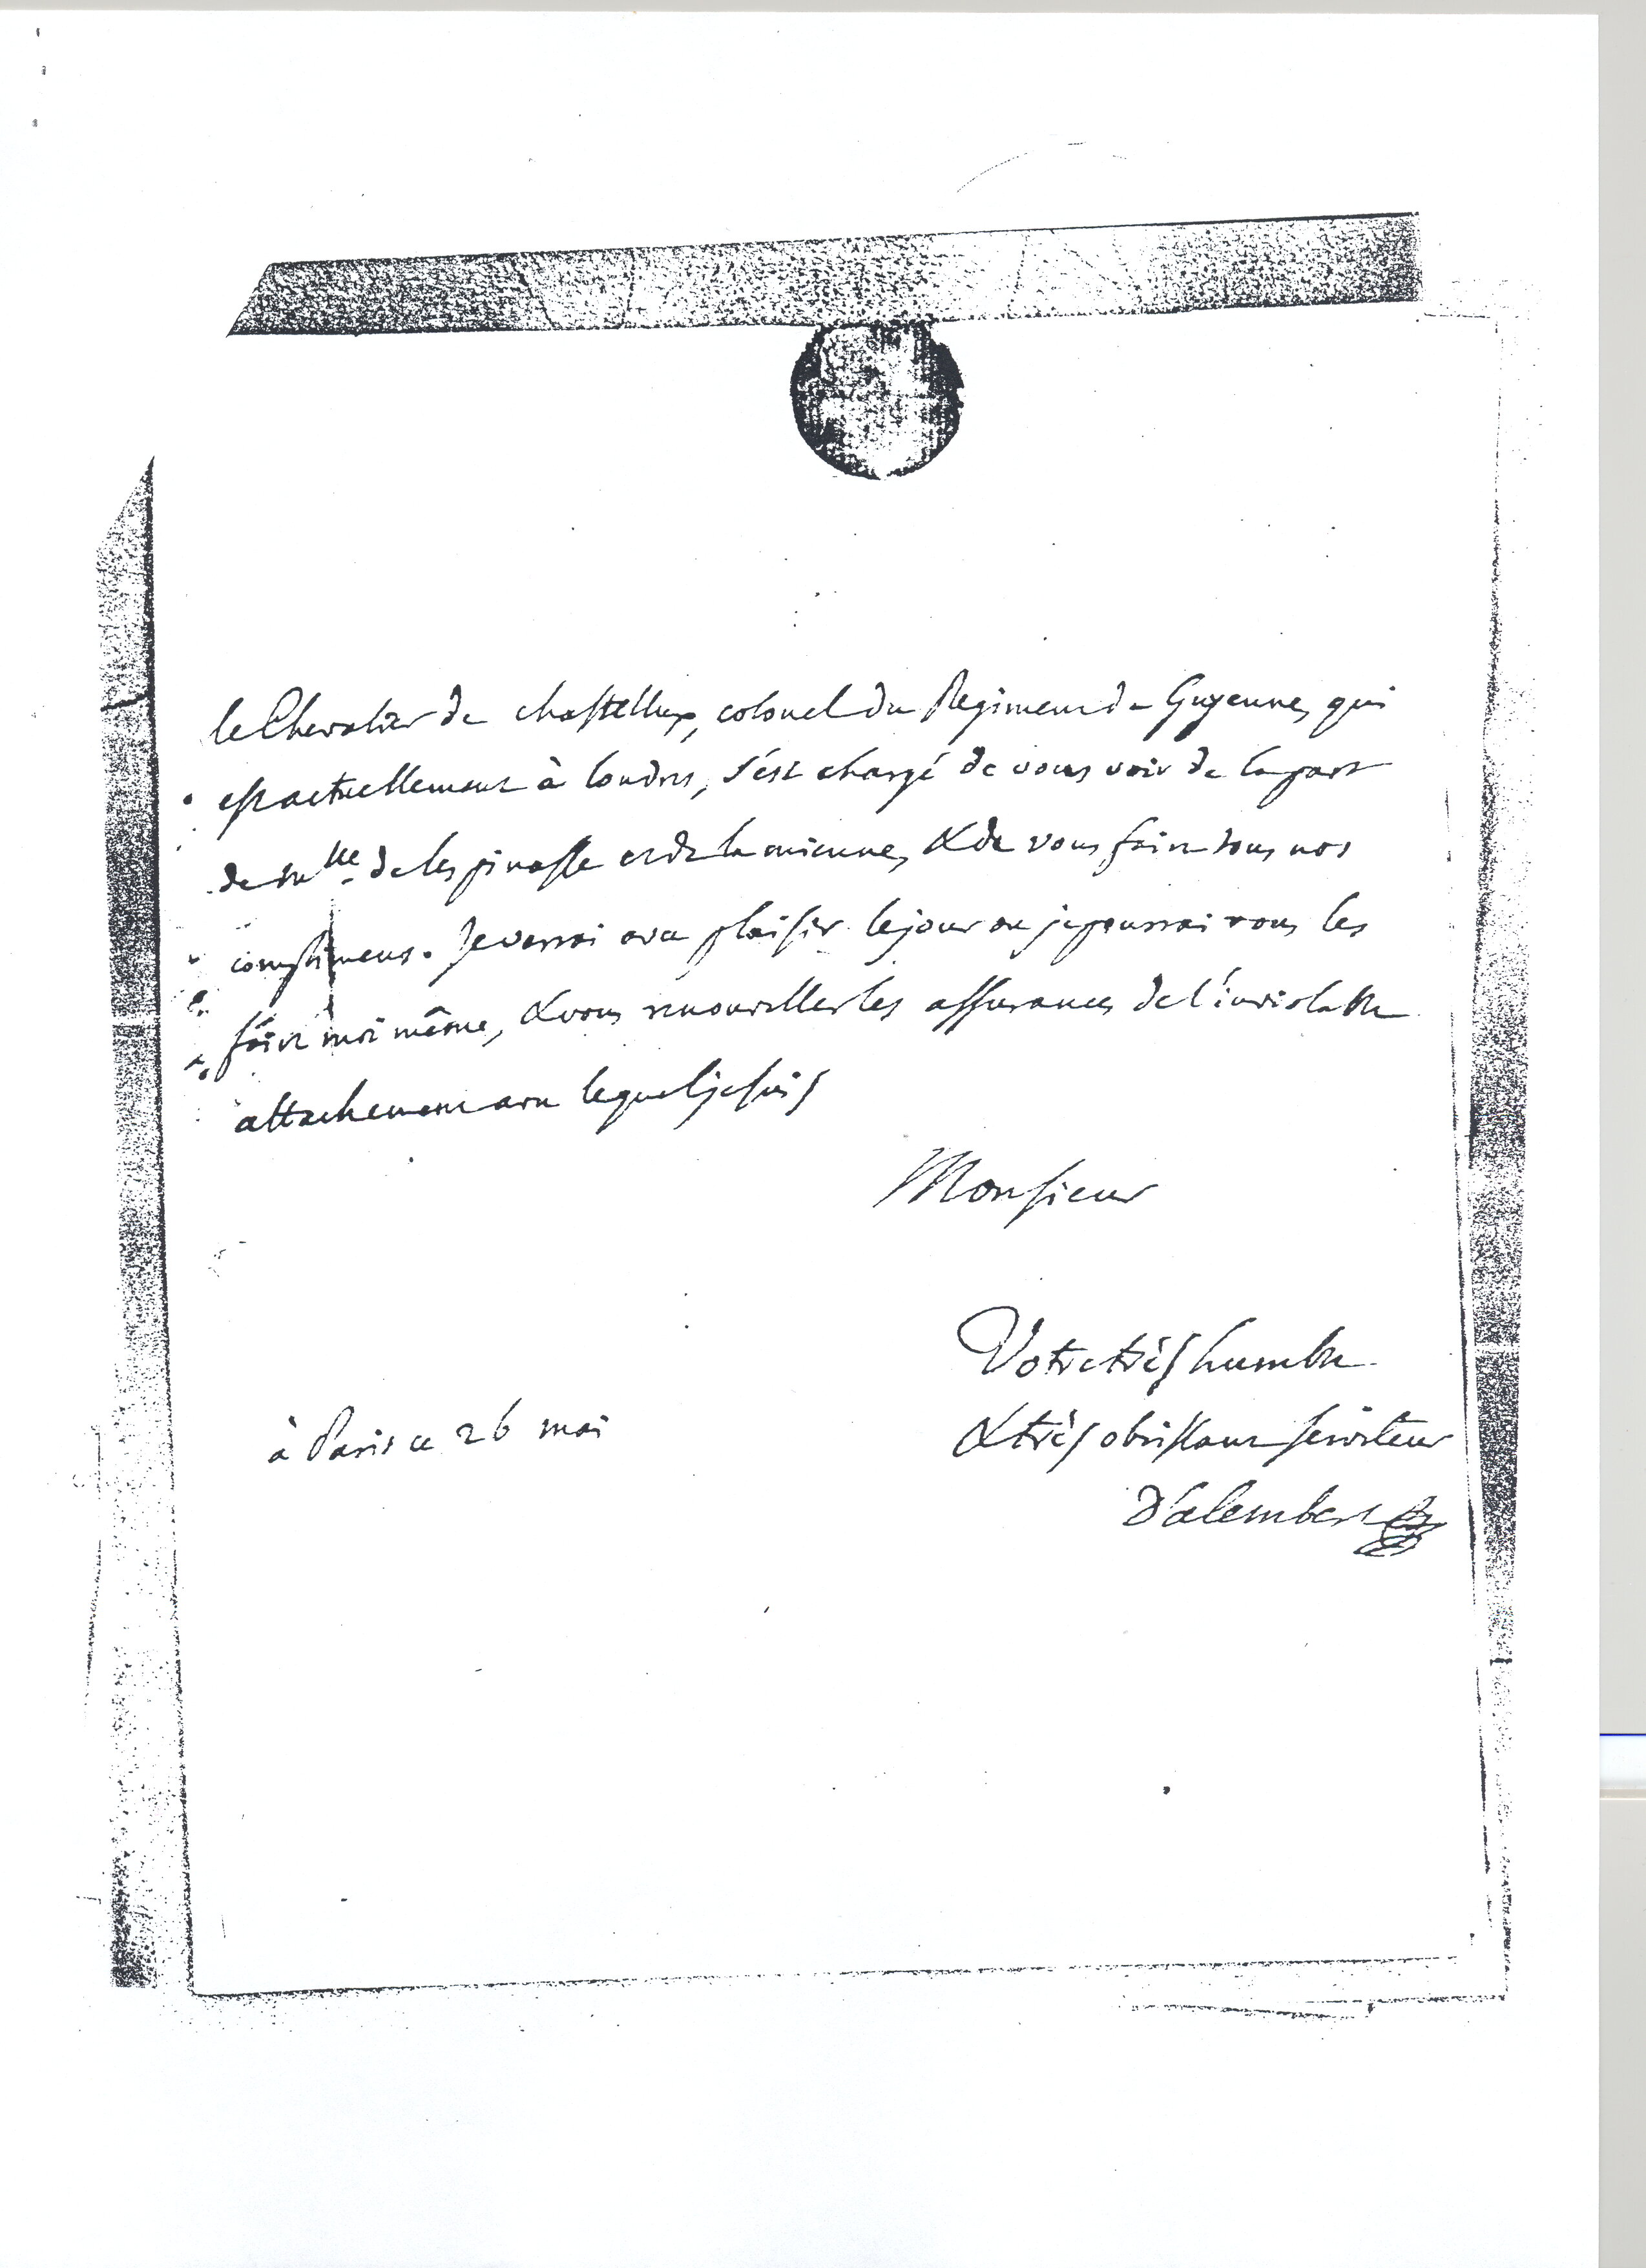 le Chevalier de chastellux, colonel du Regiment de Guyenne, qui
est actuellement à londres, s'est chargé de vous voir de la part
de mlle. de lespinasse et de la mienne, & de vous faire tous nos
complimens. Je verrai avec plaisir le jour ou je pourrai vous les
faire moi même, & vous renouveller les assurances de l'inviolable
attachement avec lequel je suis
Monsieur
Votre très humble
& très obeissant serviteur
à Paris ce 26 mai
D'alembert